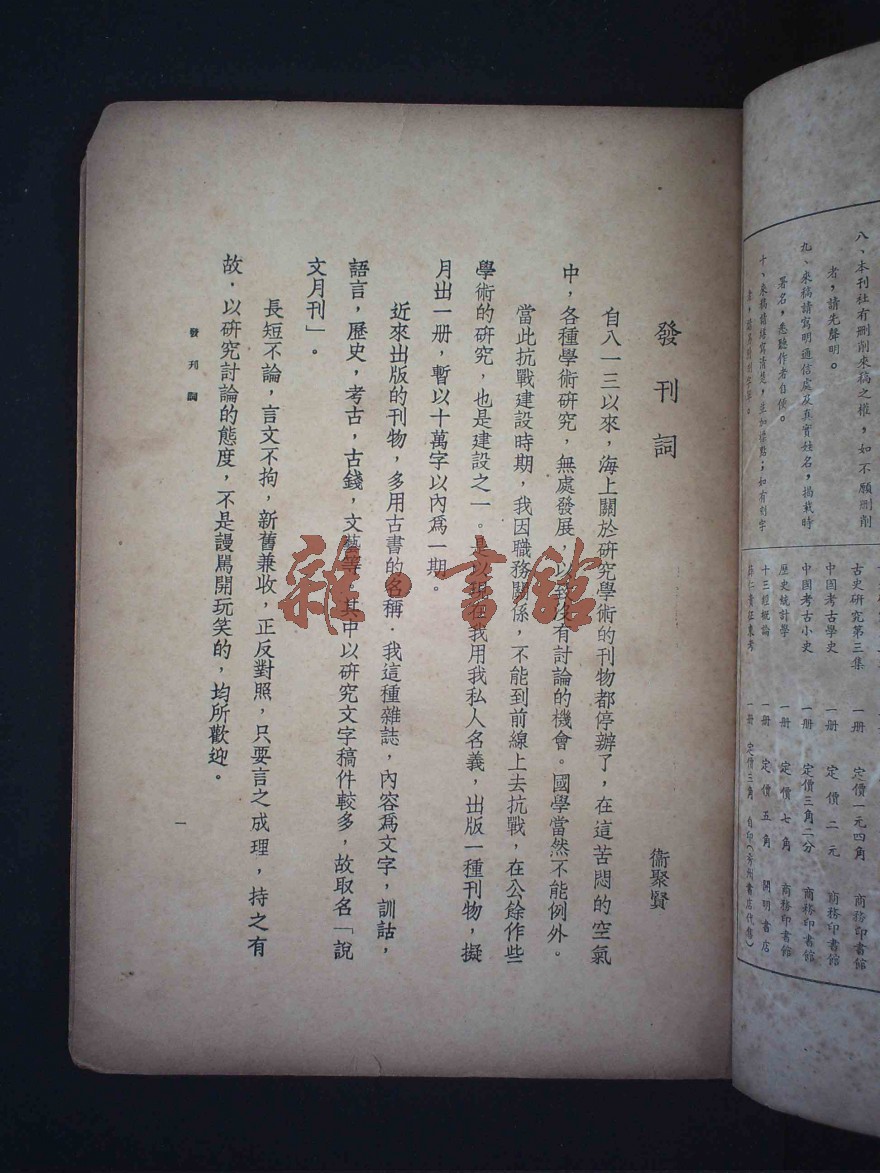 八、本刊社有刪削來稿之權，如不願刪削
者，請先聲明。
九、來稿請寫明通信處及真實姓名，揭載時
署名，悉聽作者自便。
十、來稿請繕寫清楚，並加標點；如有引字
古史研究第三集 一册 定價一元四角 商務印書館
中國考古學史 一册 定價二元 商務印書館
中國考古小史 一册 定價三角二分 商務印書館
歷史統計學 一册 定價七角 商務印書館
十三經概論 一册 定價五角 開明書店
薛仁貴征東考 一册 定價三角 自印
發刊詞
衞聚賢
自八一三以來，海上關於研究學術的刊物都停辦了，在這苦悶的空氣
中，各種學術研究，無處發展，以致少有討論的機會。國學當然不能例外。
當此抗戰建設時期，我因職務關係，不能到前線上去抗戰，在公餘作些
學術的研究，也是建設之一。是以現在我用我私人名義，出版一種刊物，擬
月出一册，暫以十萬字以內爲一期。
近來出版的刊物，多用古書的名稱．我這種雜誌，內容爲文字，訓詁，
語言，歷史，考古，古錢，文藝等。其中以研究文字稿件較多，故取名「說
文月刊」。
長短不論，言文不拘，新舊兼收，正反對照，只要言之成理，持之有
故，以研究討論的態度，不是謾駡開玩笑的，均所歡迎。
發刊詞
一
雜·書館